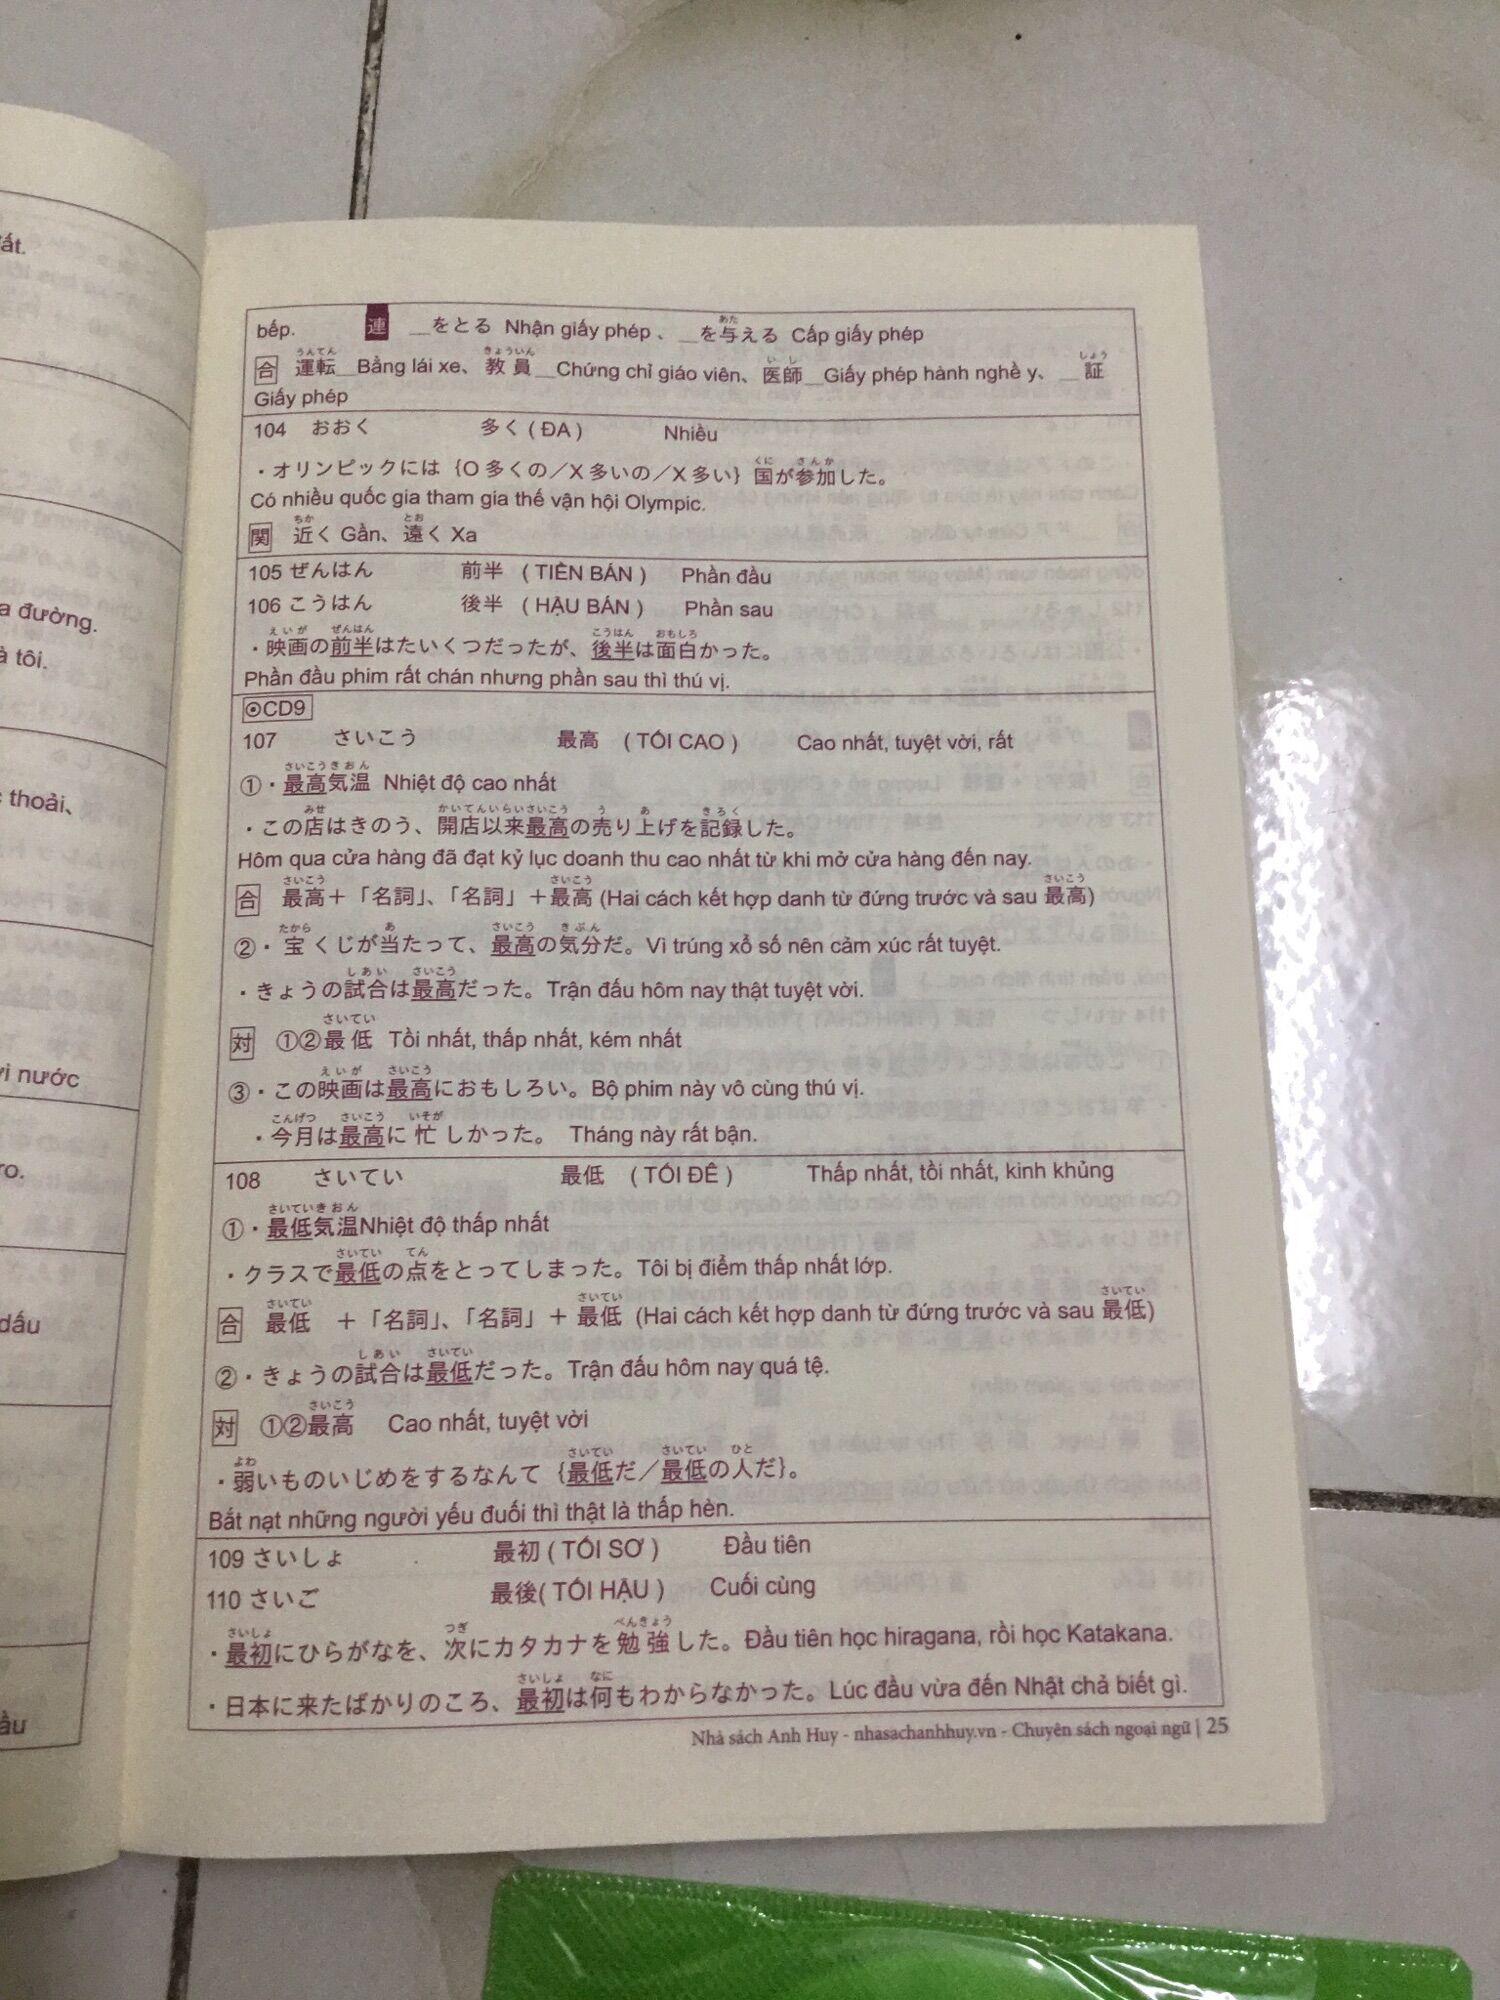 ất.
a đường.
à tôi.
thoại、
ơi nước
ro.
dấu
ầu
bếp. 連 __をとる Nhận giấy phép 、__を与える Cấp giấy phép
合 運転__Bằng lái xe、教員__Chứng chỉ giáo viên、医師__Giấy phép hành nghề y、__証
Giấy phép
104 おおく 多く ( ĐA ) Nhiều
・オリンピックには {O 多くの／X 多いの／X 多い} 国が参加した。
Có nhiều quốc gia tham gia thế vận hội Olympic.
関 近く Gần、遠く Xa
105 ぜんはん 前半 ( TIỀN BÁN ) Phần đầu
106 こうはん 後半 ( HẬU BÁN ) Phần sau
・映画の前半はたいくつだったが、後半は面白かった。
Phần đầu phim rất chán nhưng phần sau thì thú vị.
CD9
107 さいこう 最高 ( TỐI CAO ) Cao nhất, tuyệt vời, rất
①・最高気温 Nhiệt độ cao nhất
・この店はきのう、開店以来最高の売り上げを記録した。
Hôm qua cửa hàng đã đạt kỷ lục doanh thu cao nhất từ khi mở cửa hàng đến nay.
合 最高＋「名詞」、「名詞」＋最高 (Hai cách kết hợp danh từ đứng trước và sau 最高)
②・宝くじが当たって、最高の気分だ。Vì trúng xổ số nên cảm xúc rất tuyệt.
・きょうの試合は最高だった。Trận đấu hôm nay thật tuyệt vời.
対 ①②最低 Tồi nhất, thấp nhất, kém nhất
③・この映画は最高におもしろい。Bộ phim này vô cùng thú vị.
・今月は最高に忙しかった。 Tháng này rất bận.
108 さいてい 最低 ( TỐI ĐÊ ) Thấp nhất, tồi nhất, kinh khủng
①・最低気温Nhiệt độ thấp nhất
・クラスで最低の点をとってしまった。Tôi bị điểm thấp nhất lớp.
合 最低 ＋「名詞」、「名詞」＋ 最低 (Hai cách kết hợp danh từ đứng trước và sau 最低)
②・きょうの試合は最低だった。Trận đấu hôm nay quá tệ.
対 ①②最高 Cao nhất, tuyệt vời
・弱いものいじめをするなんて {最低だ／最低の人だ}。
Bắt nạt những người yếu đuối thì thật là thấp hèn.
109 さいしょ 最初 ( TỐI SƠ ) Đầu tiên
110 さいご 最後( TỐI HẬU ) Cuối cùng
・最初にひらがなを、次にカタカナを勉強した。Đầu tiên học hiragana, rồi học Katakana.
・日本に来たばかりのころ、最初は何もわからなかった。Lúc đầu vừa đến Nhật chả biết gì.
Nhà sách Anh Huy - nhasachanhhuy.vn - Chuyên sách ngoại ngữ | 25